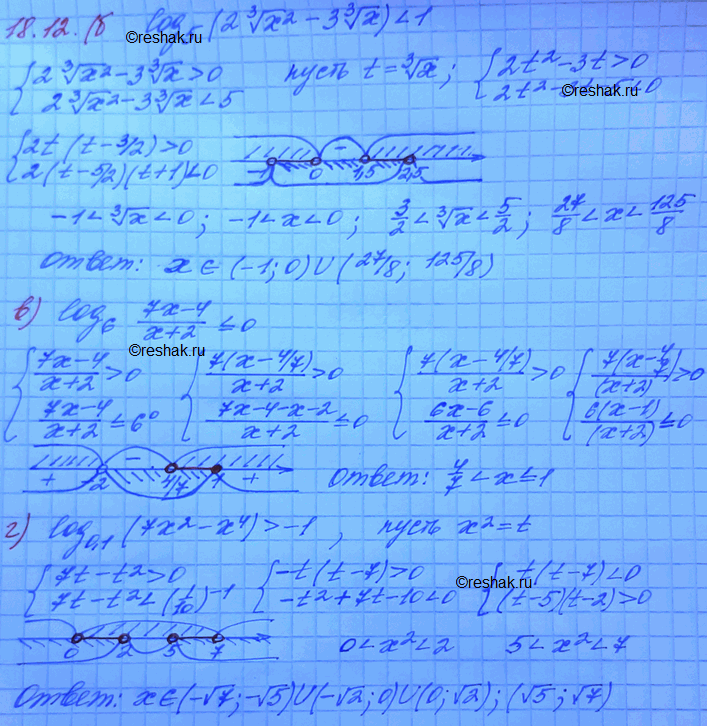 18.12. (б log₅ (2∛x² − 3∛x) < 1
©reshak.ru
{2∛x² − 3∛x > 0
2∛x² − 3∛x < 5
пусть t = ∛x ; {2t² − 3t > 0
2t² − 3t − 5 < 0
©reshak.ru
{2t (t − 3/2) > 0
2(t − 5/2)(t + 1) < 0
− −1 0 1,5 2,5
−1 < ∛x < 0 ; −1 < x < 0 ; 3/2 < ∛x < 5/2 ; 27/8 < x < 125/8
Ответ: x ∈ (−1; 0) ∪ (27/8; 125/8)
в) log₆ (7x−4)/(x+2) ≤ 0
©reshak.ru
{(7x−4)/(x+2) > 0 {7(x−4/7)/(x+2) > 0 {7(x−4/7)/(x+2) > 0 {7(x−4/7)/(x+2) > 0
(7x−4)/(x+2) ≤ 6⁰ (7x−4−x−2)/(x+2) ≤ 0 (6x−6)/(x+2) ≤ 0 6(x−1)/(x+2) ≤ 0
+ −2 − 4/7 1 + Ответ: 4/7 < x ≤ 1
г) log₀,₁ (7x² − x⁴) > −1 , пусть x² = t
©reshak.ru
{7t − t² > 0 {−t(t−7) > 0 {t(t−7) < 0
7t − t² < (1/10)⁻¹ −t² + 7t − 10 < 0 (t−5)(t−2) > 0
0 2 5 7 0 < x² < 2 5 < x² < 7
Ответ: x ∈ (−√7; −√5) ∪ (−√2; 0) ∪ (0; √2) ; (√5; √7)